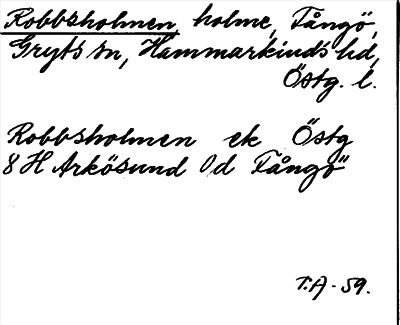 Robbsholmen, holme, Fångö,
Gryts sn, Hammarkinds hd,
Östg. l.
Robbsholmen ek Östg
8 H Arkösund 0d Fångö
T.A - 59.